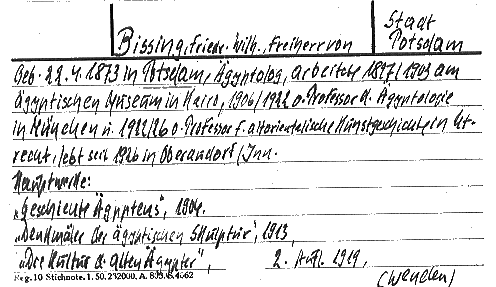 Bissing, Friedr. Wilh., Freiherr von
Stadt
Potsdam
Geb. 22.4.1873 in Potsdam, Ägyptolog, arbeitete 1897/1903 am
ägyptischen Museum in Kairo, 1906/1922 o. Professor d. Ägyptologie
in München u. 1922/26 o. Professor f. altorientalische Kunstgeschichte in Ut-
recht, lebt seit 1926 in Oberaudorf/Inn.
Hauptwerke:
„Geschichte Ägyptens", 1904.
„Denkmäler der ägyptischen Skulptur", 1913,
„Die Kultur d. alten Ägypter", 2. Aufl. 1919,
Reg. 10 Stichnote. 1. 50. 232000. A. 4062
(wenden)